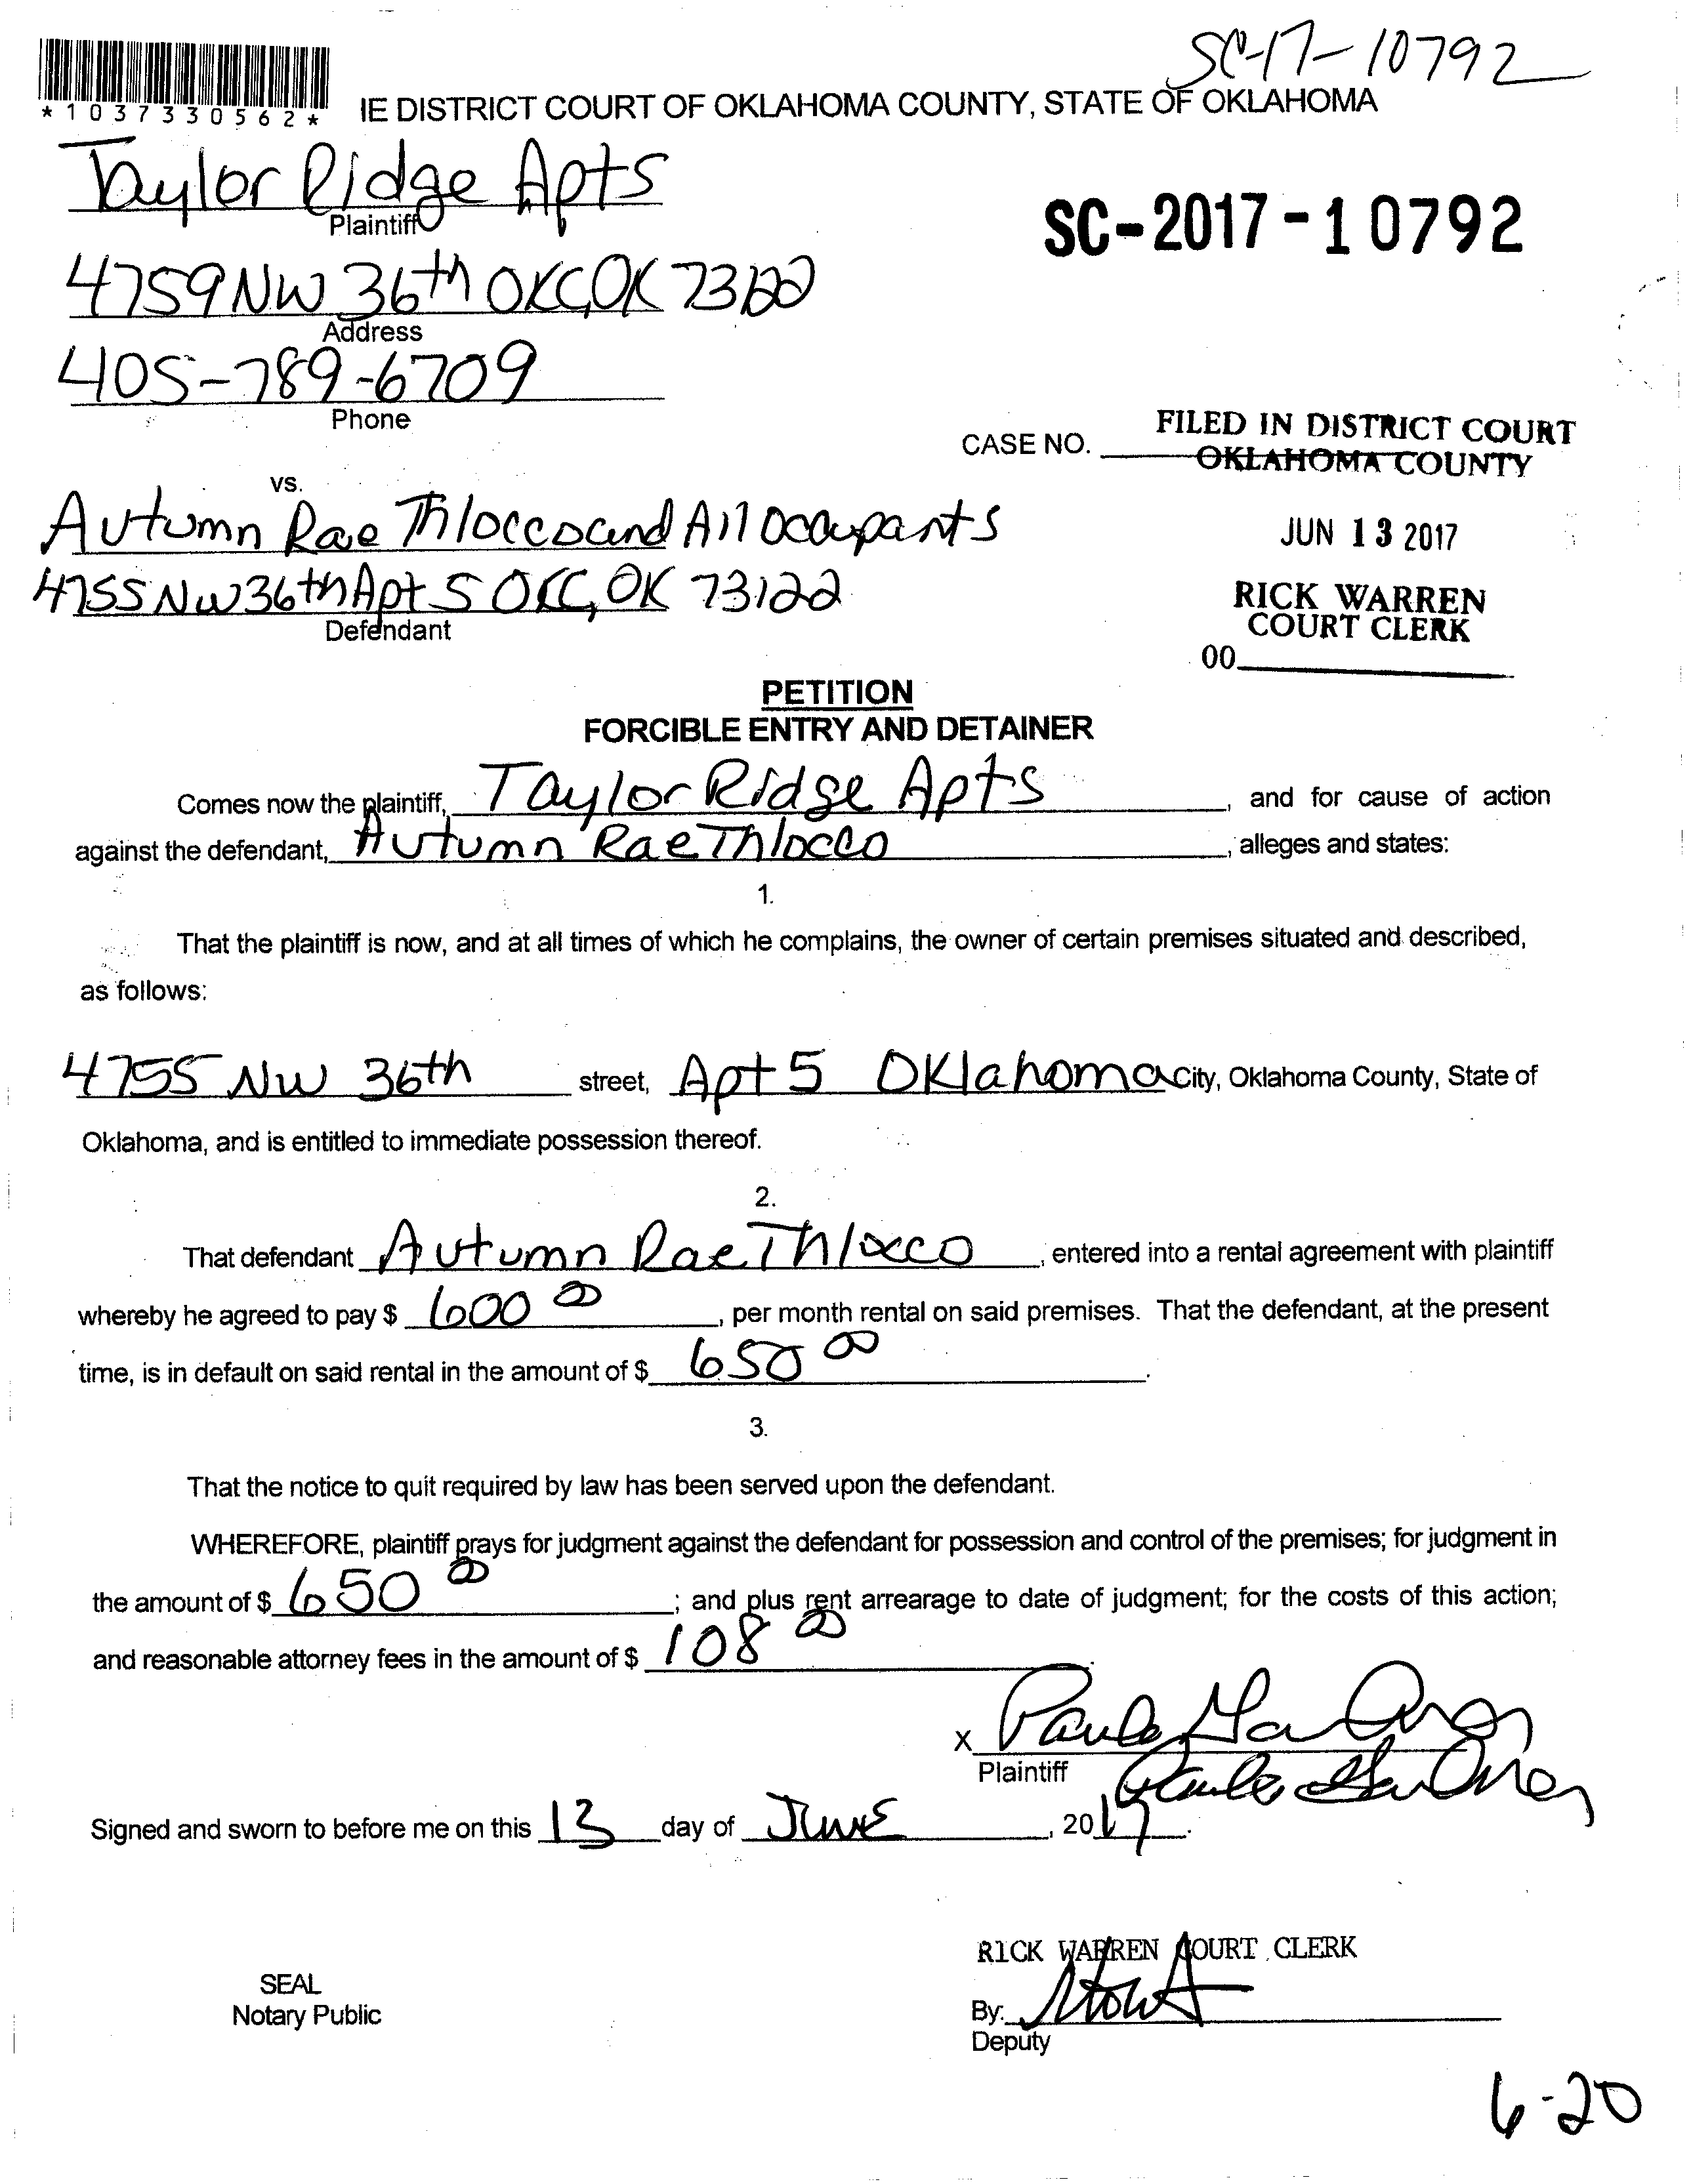 SC-17-10792
*1037330562*
IE DISTRICT COURT OF OKLAHOMA COUNTY, STATE OF OKLAHOMA
Taylor Ridge Apts
Plaintiff
SC-2017-10792
4759 NW 36th OKC, OK 73122
Address
405-789-6709
Phone
CASE NO.
FILED IN DISTRICT COURT
OKLAHOMA COUNTY
vs.
Autumn Rae Thlocco and All Occupants
JUN 13 2017
4755 NW 36th Apt 5 OKC, OK 73122
Defendant
RICK WARREN
COURT CLERK
00
PETITION
FORCIBLE ENTRY AND DETAINER
Comes now the plaintiff, Taylor Ridge Apts, and for cause of action
against the defendant, Autumn Rae Thlocco, alleges and states:
1.
That the plaintiff is now, and at all times of which he complains, the owner of certain premises situated and described,
as follows:
4755 NW 36th street, Apt 5 Oklahoma City, Oklahoma County, State of
Oklahoma, and is entitled to immediate possession thereof.
2.
That defendant Autumn Rae Thlocco, entered into a rental agreement with plaintiff
whereby he agreed to pay $ 600 00, per month rental on said premises. That the defendant, at the present
time, is in default on said rental in the amount of $ 650 00.
3.
That the notice to quit required by law has been served upon the defendant.
WHEREFORE, plaintiff prays for judgment against the defendant for possession and control of the premises; for judgment in
the amount of $ 650 00; and plus rent arrearage to date of judgment; for the costs of this action;
and reasonable attorney fees in the amount of $ 108 00.
X
Plaintiff
Signed and sworn to before me on this 13 day of June, 2017.
RICK WARREN COURT CLERK
SEAL
Notary Public
By:
Deputy
6-20